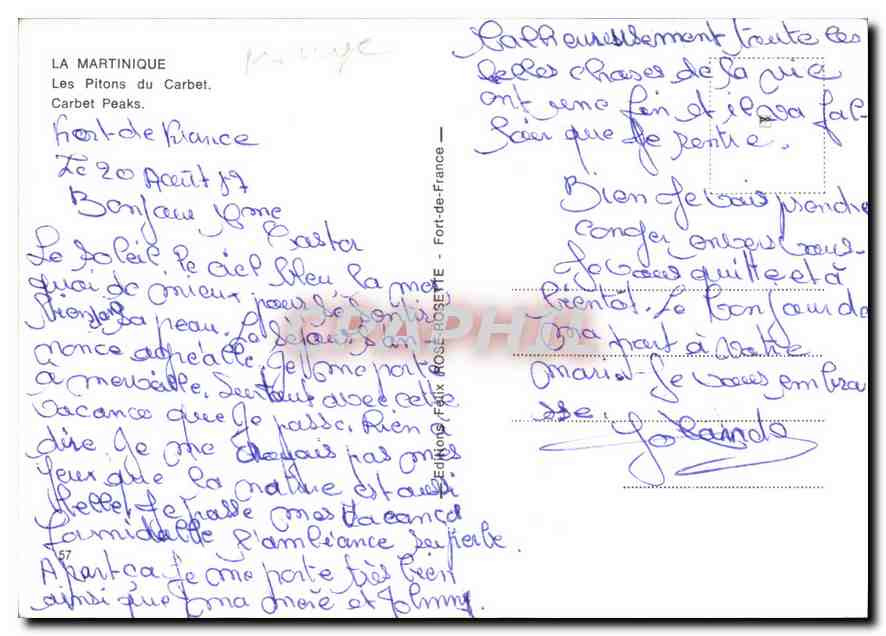 LA MARTINIQUE
Les Pitons du Carbet.
Carbet Peaks.
Fort-de France
Le 20 Août 87
Bonjour Mme
Castor
Le soleil, le ciel bleu la mer
quoi de mieux pour se sentir
bien dans sa peau. Le séjour s'an-
nonce agréable, Je me porte
à merveille. Surtout avec cette
vacance que Je passe. Rien à
dire Je me croyais pas mes
yeux que la nature est aussi
belle, Je passe mes vacance
formidable l'ambiance superbe.
A part ça Je me porte très bien
ainsi que ma mère et Johnny.
57
Editions Felix ROSE-ROSETTE - Fort-de-France
Malheureusement toute les
belles choses de la vie
ont une fin et il va fal-
loir que Je rentre.
Bien Je vais prendre
conger envers vous.
Je vous quitte et à
bientôt. Le bonjour de
ma part à votre
maria. Je vous embra
sse.
Yolande
CPAPHIL